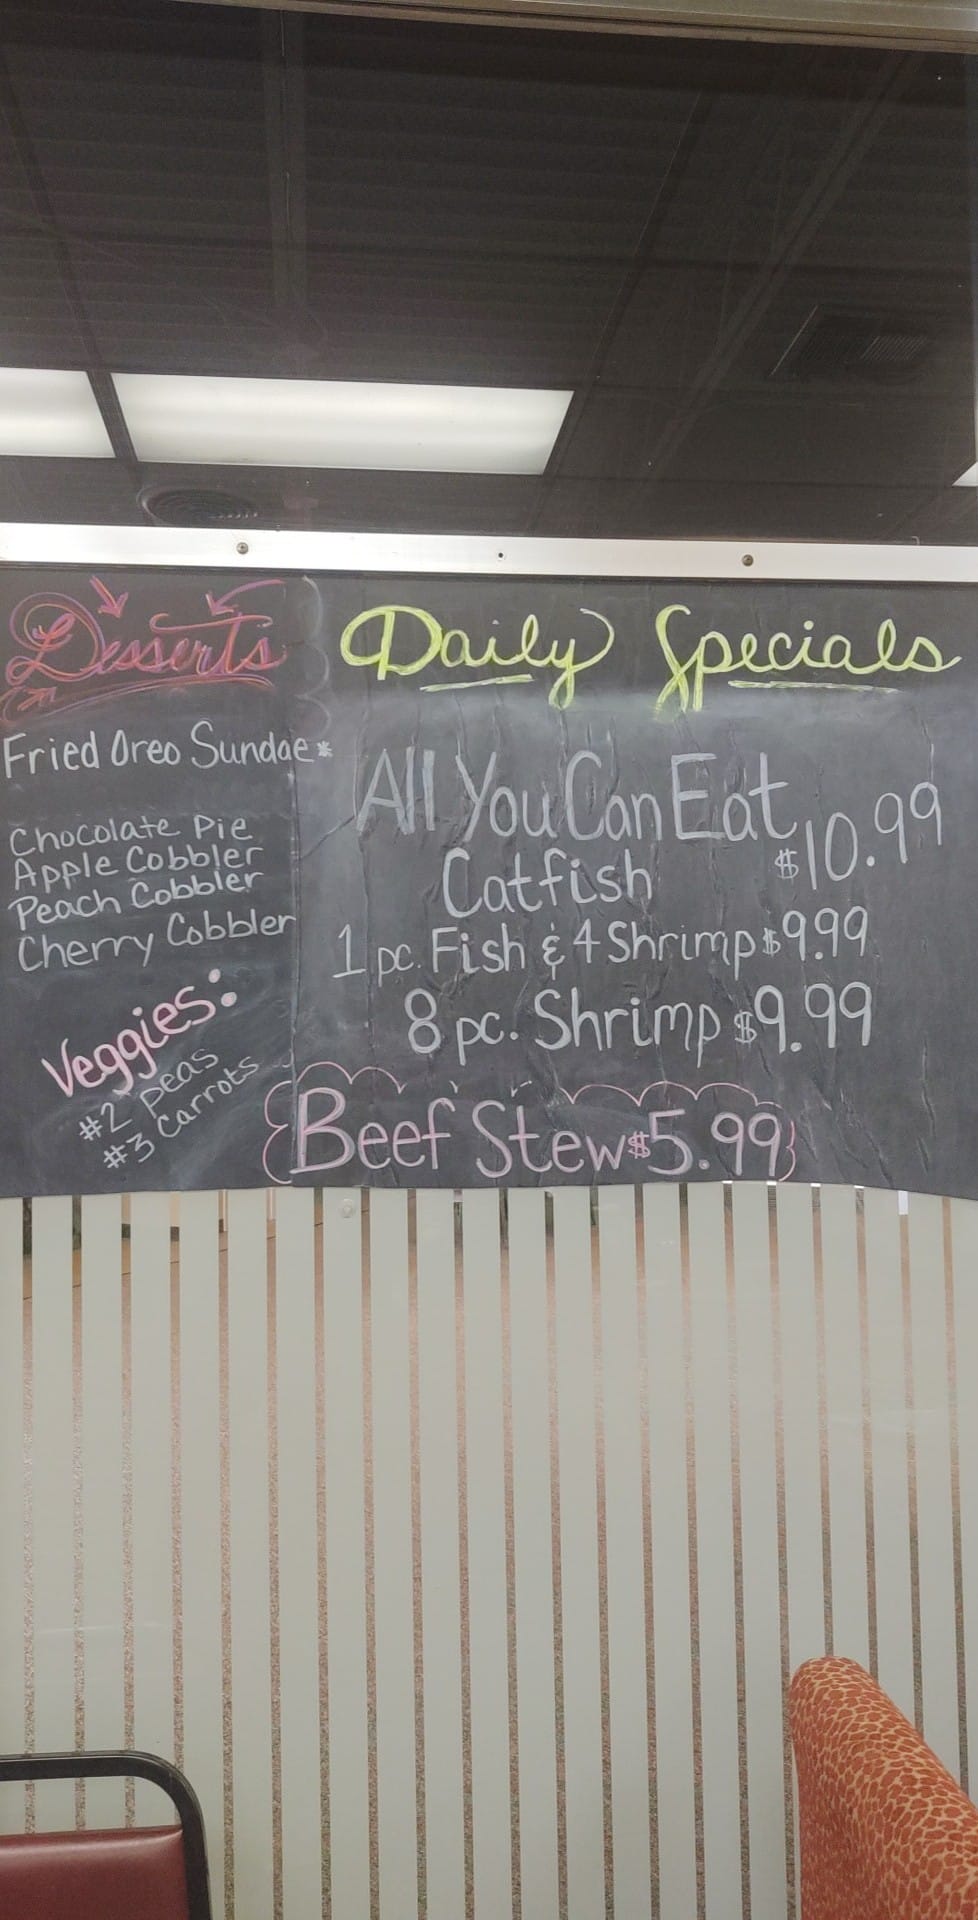 Desserts
Fried Oreo Sundae*
Chocolate Pie
Apple Cobbler
Peach Cobbler
Cherry Cobbler
Veggies:
#2 peas
#3 Carrots
Daily Specials
All You Can Eat
Catfish $10.99
1 pc. Fish & 4 Shrimp $9.99
8 pc. Shrimp $9.99
Beef Stew $5.99